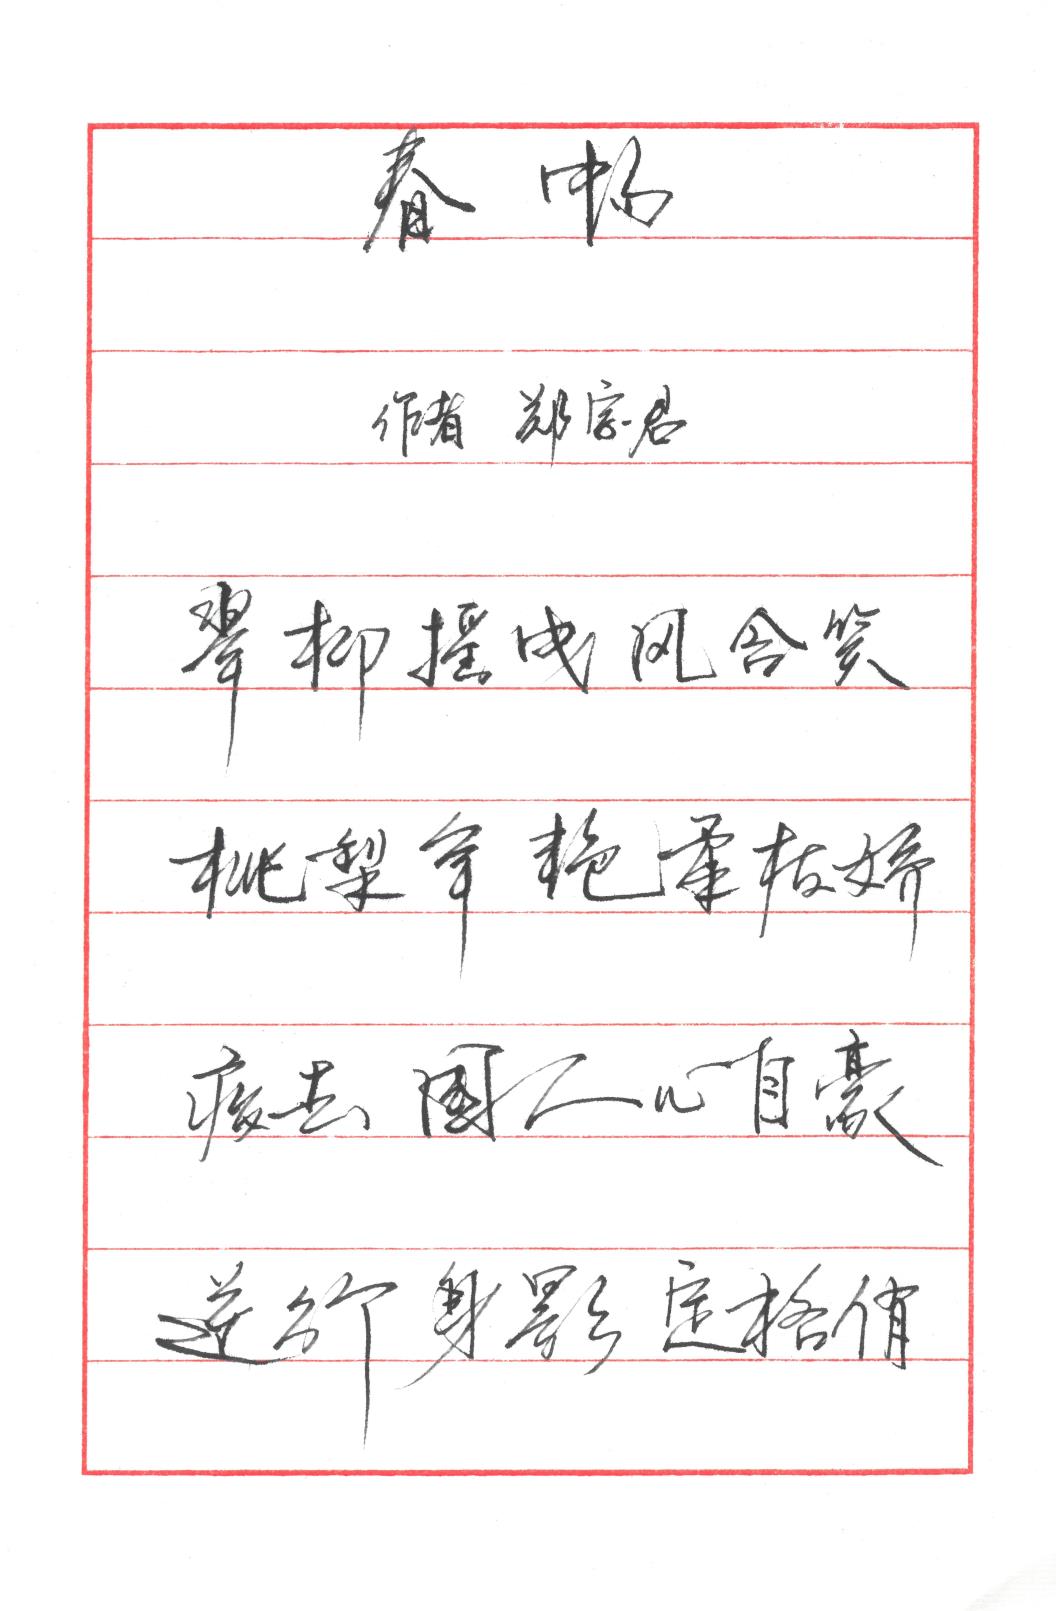 春畅
作者 郑宗君
翠柳摇曳风含笑
桃梨争艳柔枝娇
疫去国人心自豪
逆行身影定格俏